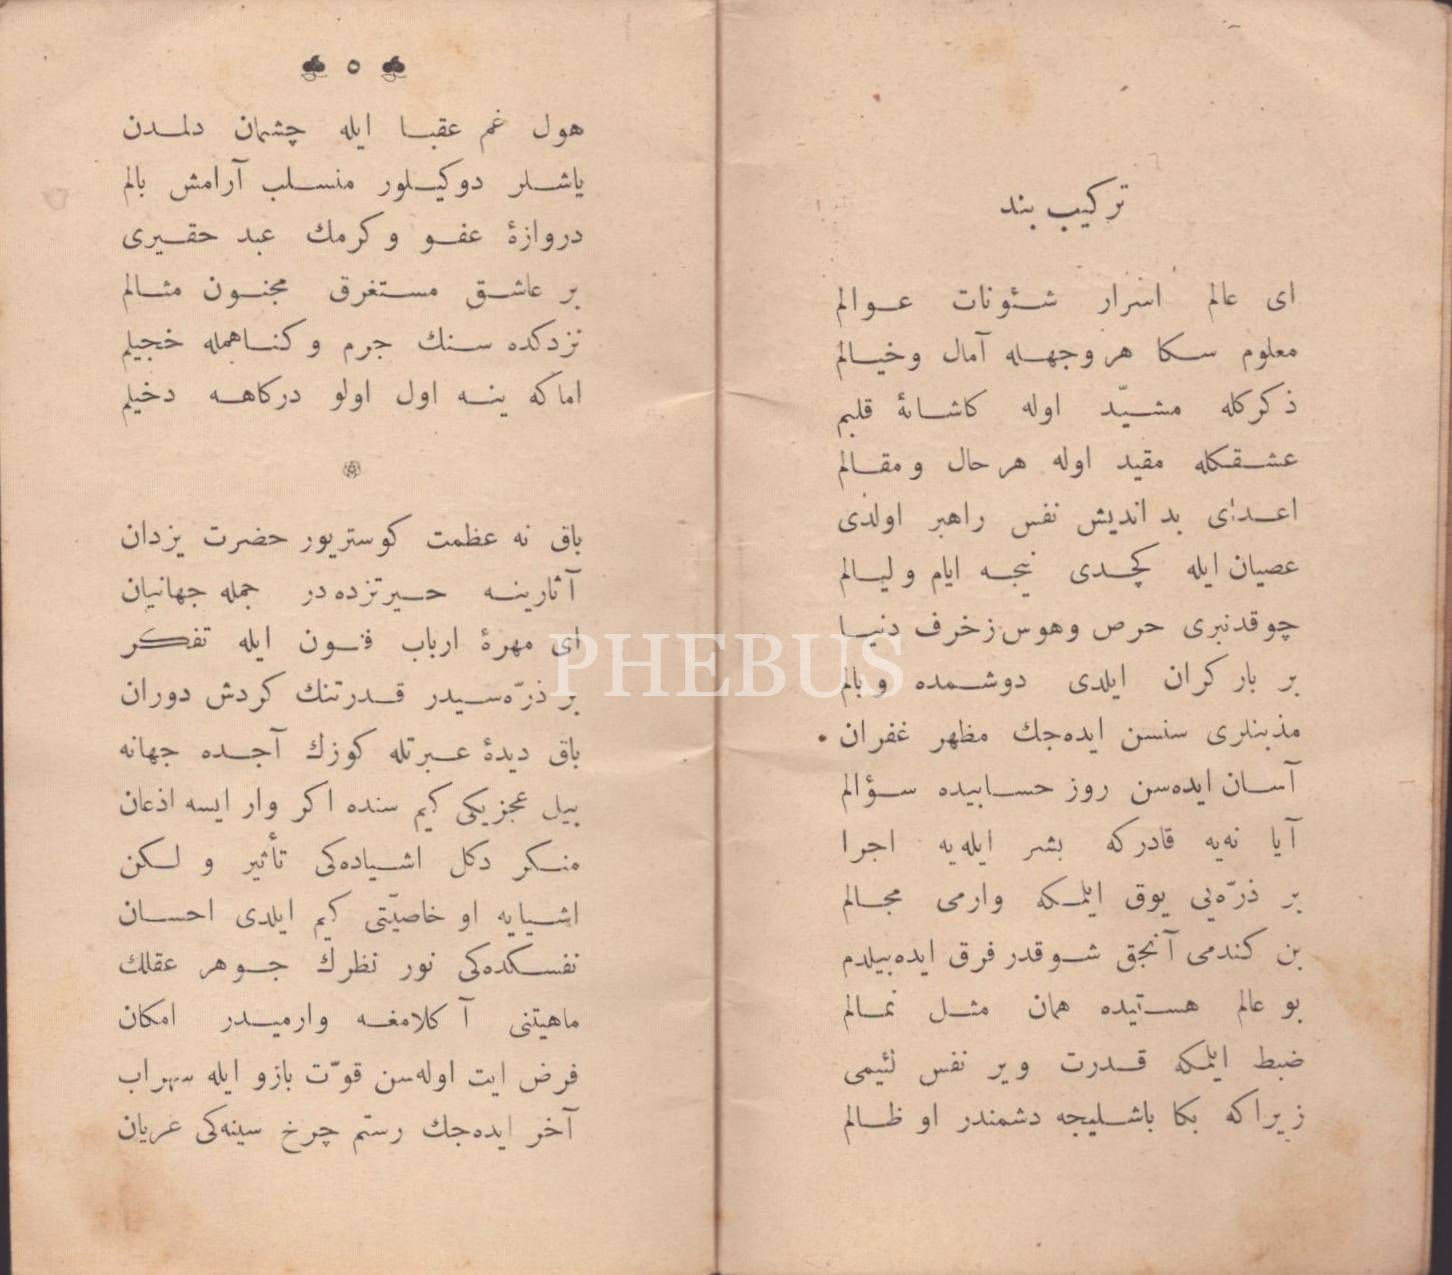 تركيب بند
ای عالم اسرار شئونات عوالم
معلوم سكا هر وجهله آمال وخيالم
ذكركله مشيّد اوله كاشانۀ قلبم
عشقكله مقيد اوله هر حال ومقالم
اعدای بد انديش نفس راهبر اولدی
عصيان ايله كچدی نيجه ايام و ليالم
چوقدنبری حرص وهوس زخرف دنيا
بر بار كران ايلدی دوشمده وبالم
مذنبلری سنسن ايده‌جك مظهر غفران
آسان ايده‌سن روز حسابيده سؤالم
آيا نه‌يه قادركه بشر ايله‌يه اجرا
بر ذرّه‌يی يوق ايلمكه وارمی مجالم
بن كندمی آنجق شوقدر فرق ايده‌بيلدم
بو عالم هستيده همان مثل نمالم
ضبط ايلمكه قدرت وير نفس لئيمی
زيراكه بكا باشليجه دشمندر او ظالم
٥
هول غم عقبا ايله چشمان دلمدن
ياشلر دوكيلور منسلب آرامش بالم
دروازۀ عفو وكرمك عبد حقيری
بر عاشق مستغرق مجنون مثالم
نزدكده سنك جرم وكناهمله خجيلم
اماكه ينه اول اولو دركاهه دخيلم
باق نه عظمت كوستريور حضرت يزدان
آثارينه حيرتزده‌در جمله جهانيان
ای مهرۀ ارباب فنون ايله تفكر
بر ذرّه‌سيدر قدرتنك كردش دوران
باق ديدۀ عبرتله كوزك آجده جهانه
بيل عجزيكی كيم سنده اكر وار ايسه اذعان
منكر دكل اشياده‌كی تأثير و لكن
اشيايه او خاصيّتی كيم ايلدی احسان
نفسكده‌كی نور نظرك جوهر عقلك
ماهيتنی آكلامغه وارميدر امكان
فرض ايت اوله‌سن قوّت بازو ايله سهراب
آخر ايده‌جك رستم چرخ سينه‌كی عريان
PHEBUS